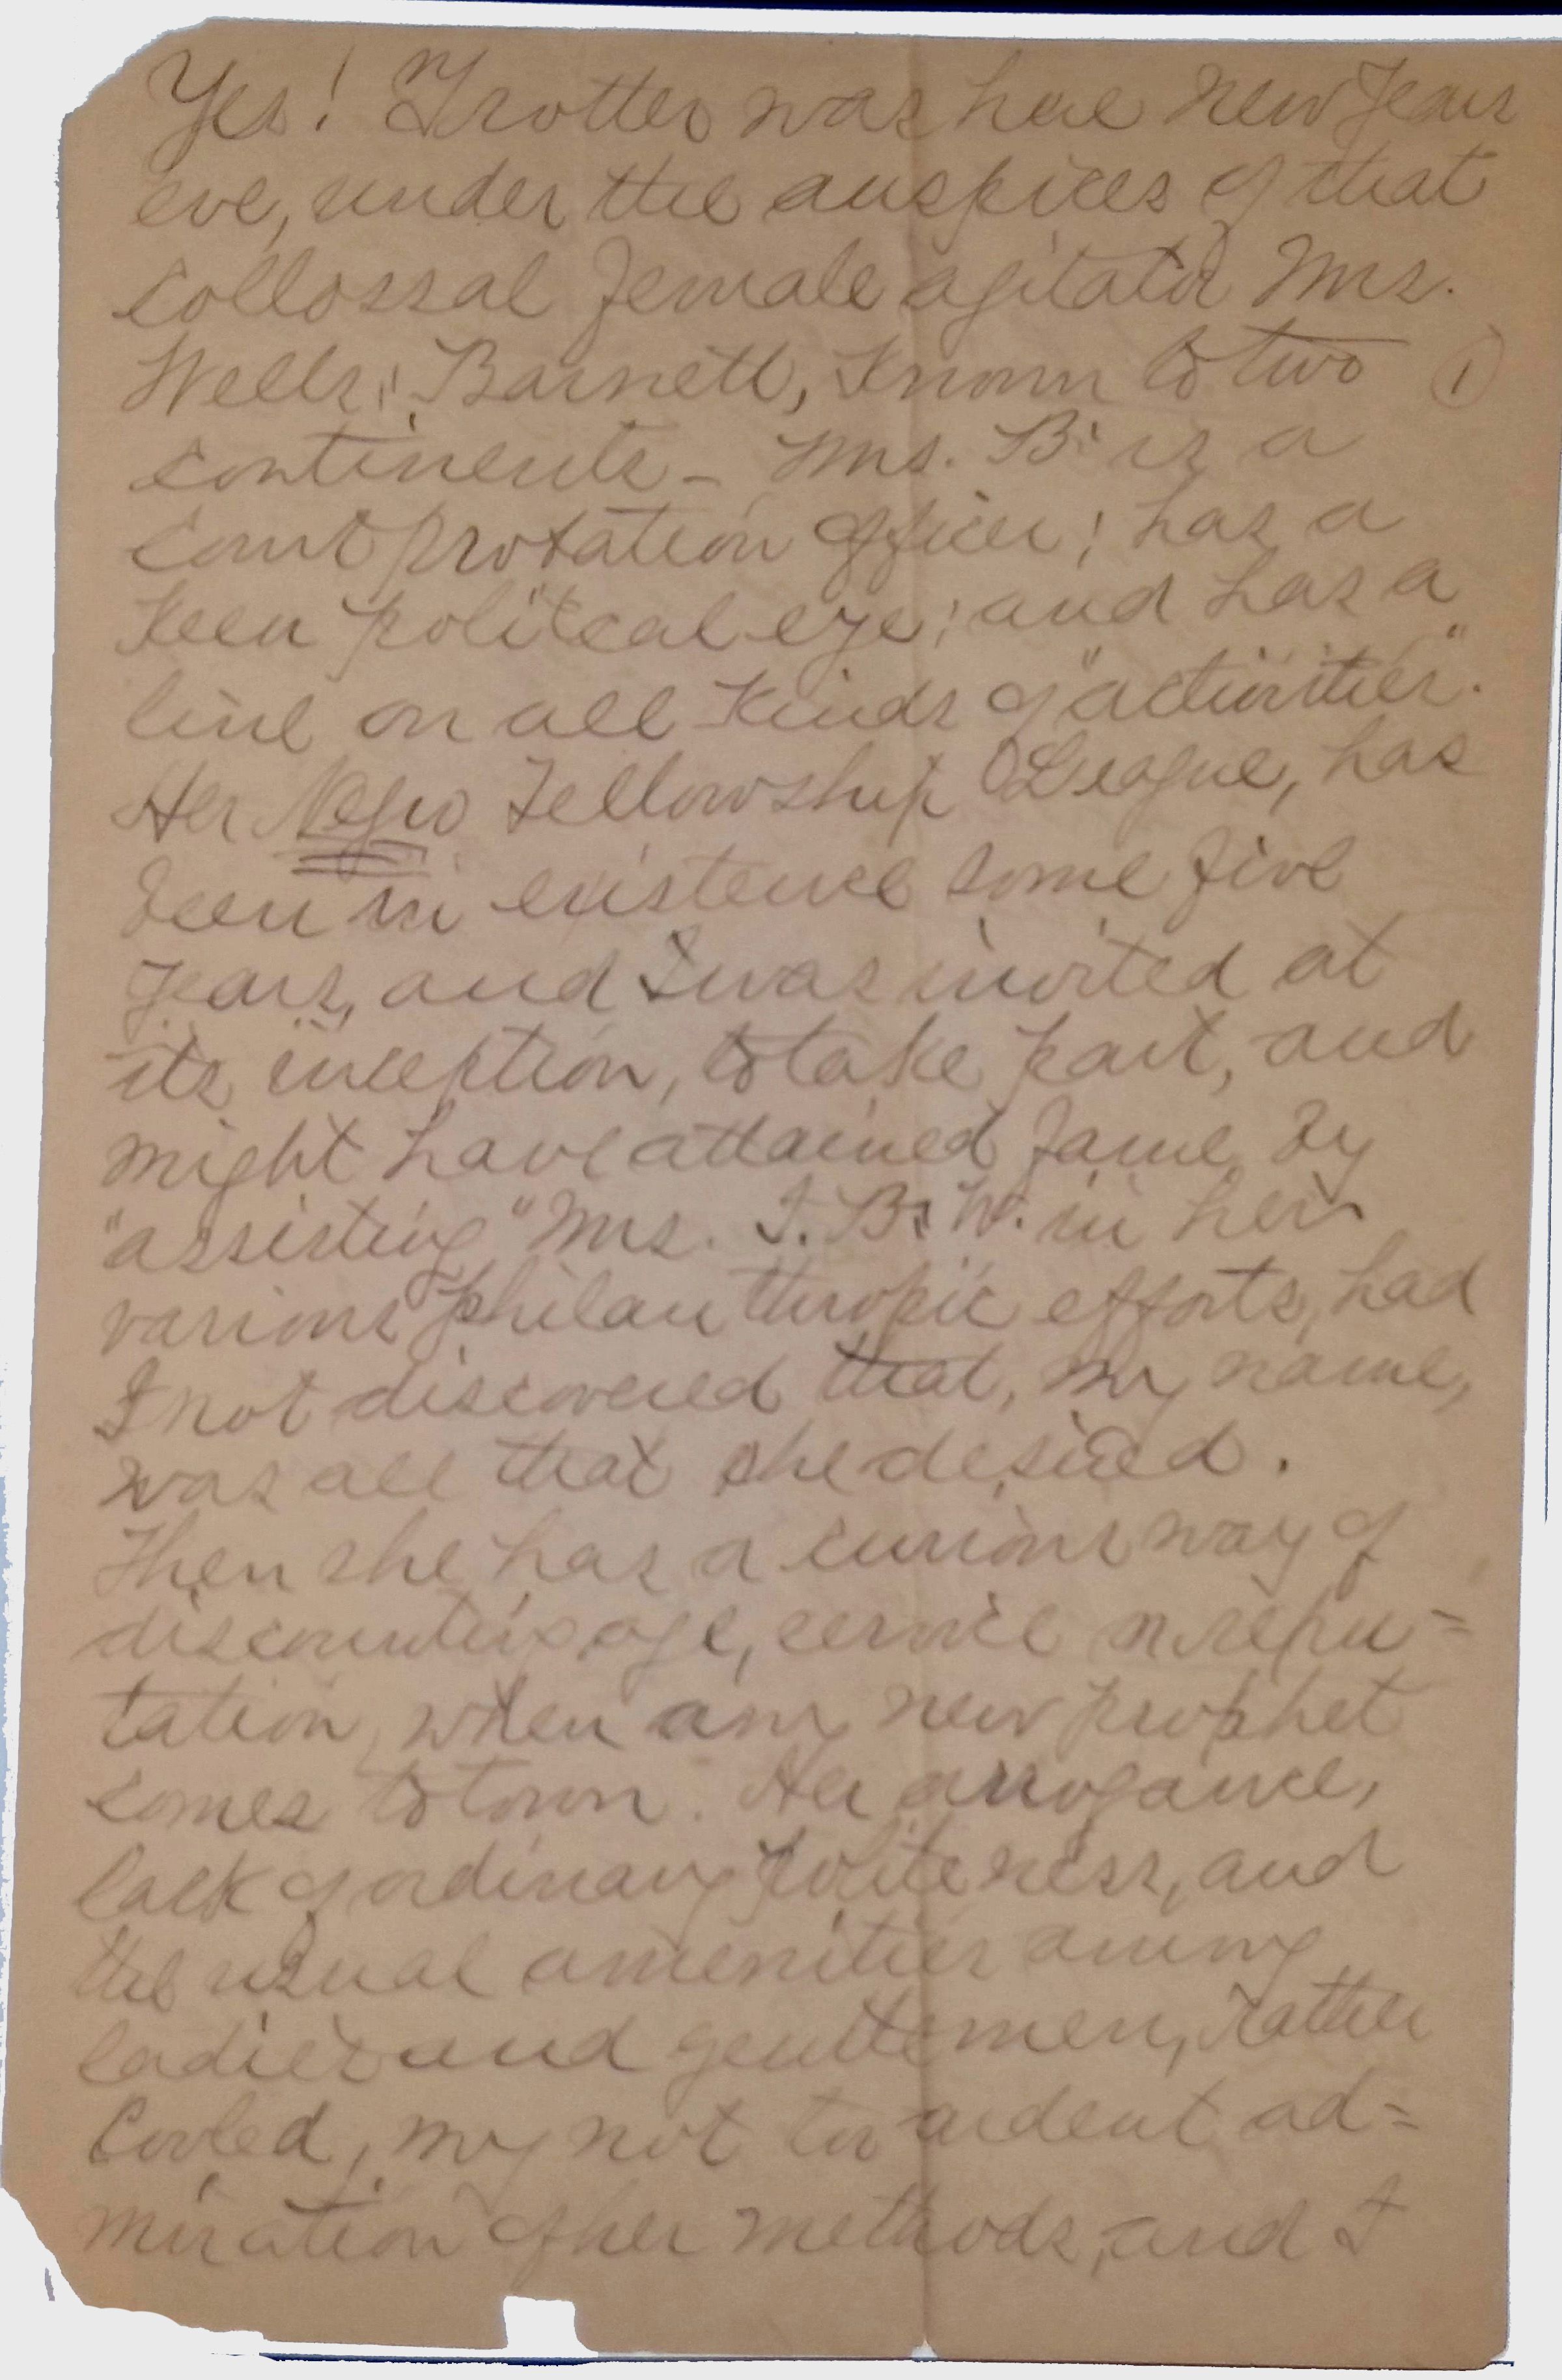 Yes! Trotter was here New Years
eve, under the auspices of that
collossal female agitator Mrs.
Wells; Barnett, known to two ①
continents - Mrs. B. is a
court probation officer; has a
keen political eye; and has a
line on all kinds of "activities".
Her Negro Fellowship League, has
been in existence some five
years, and I was invited at
its inception, to take part, and
might have attained fame, by
"assisting" Mrs. I. B. W. in her
various philanthropic efforts, had
I not discovered that, my name,
was all that she desired.
Then she has a curious way of
discounting age, service or repu=
tation, when any new prophet
comes to town. Her arrogance,
lack of ordinary politeness, and
the usual amenities among
ladies and gentlemen, rather
cooled, my not too ardent ad=
miration of her methods, and I